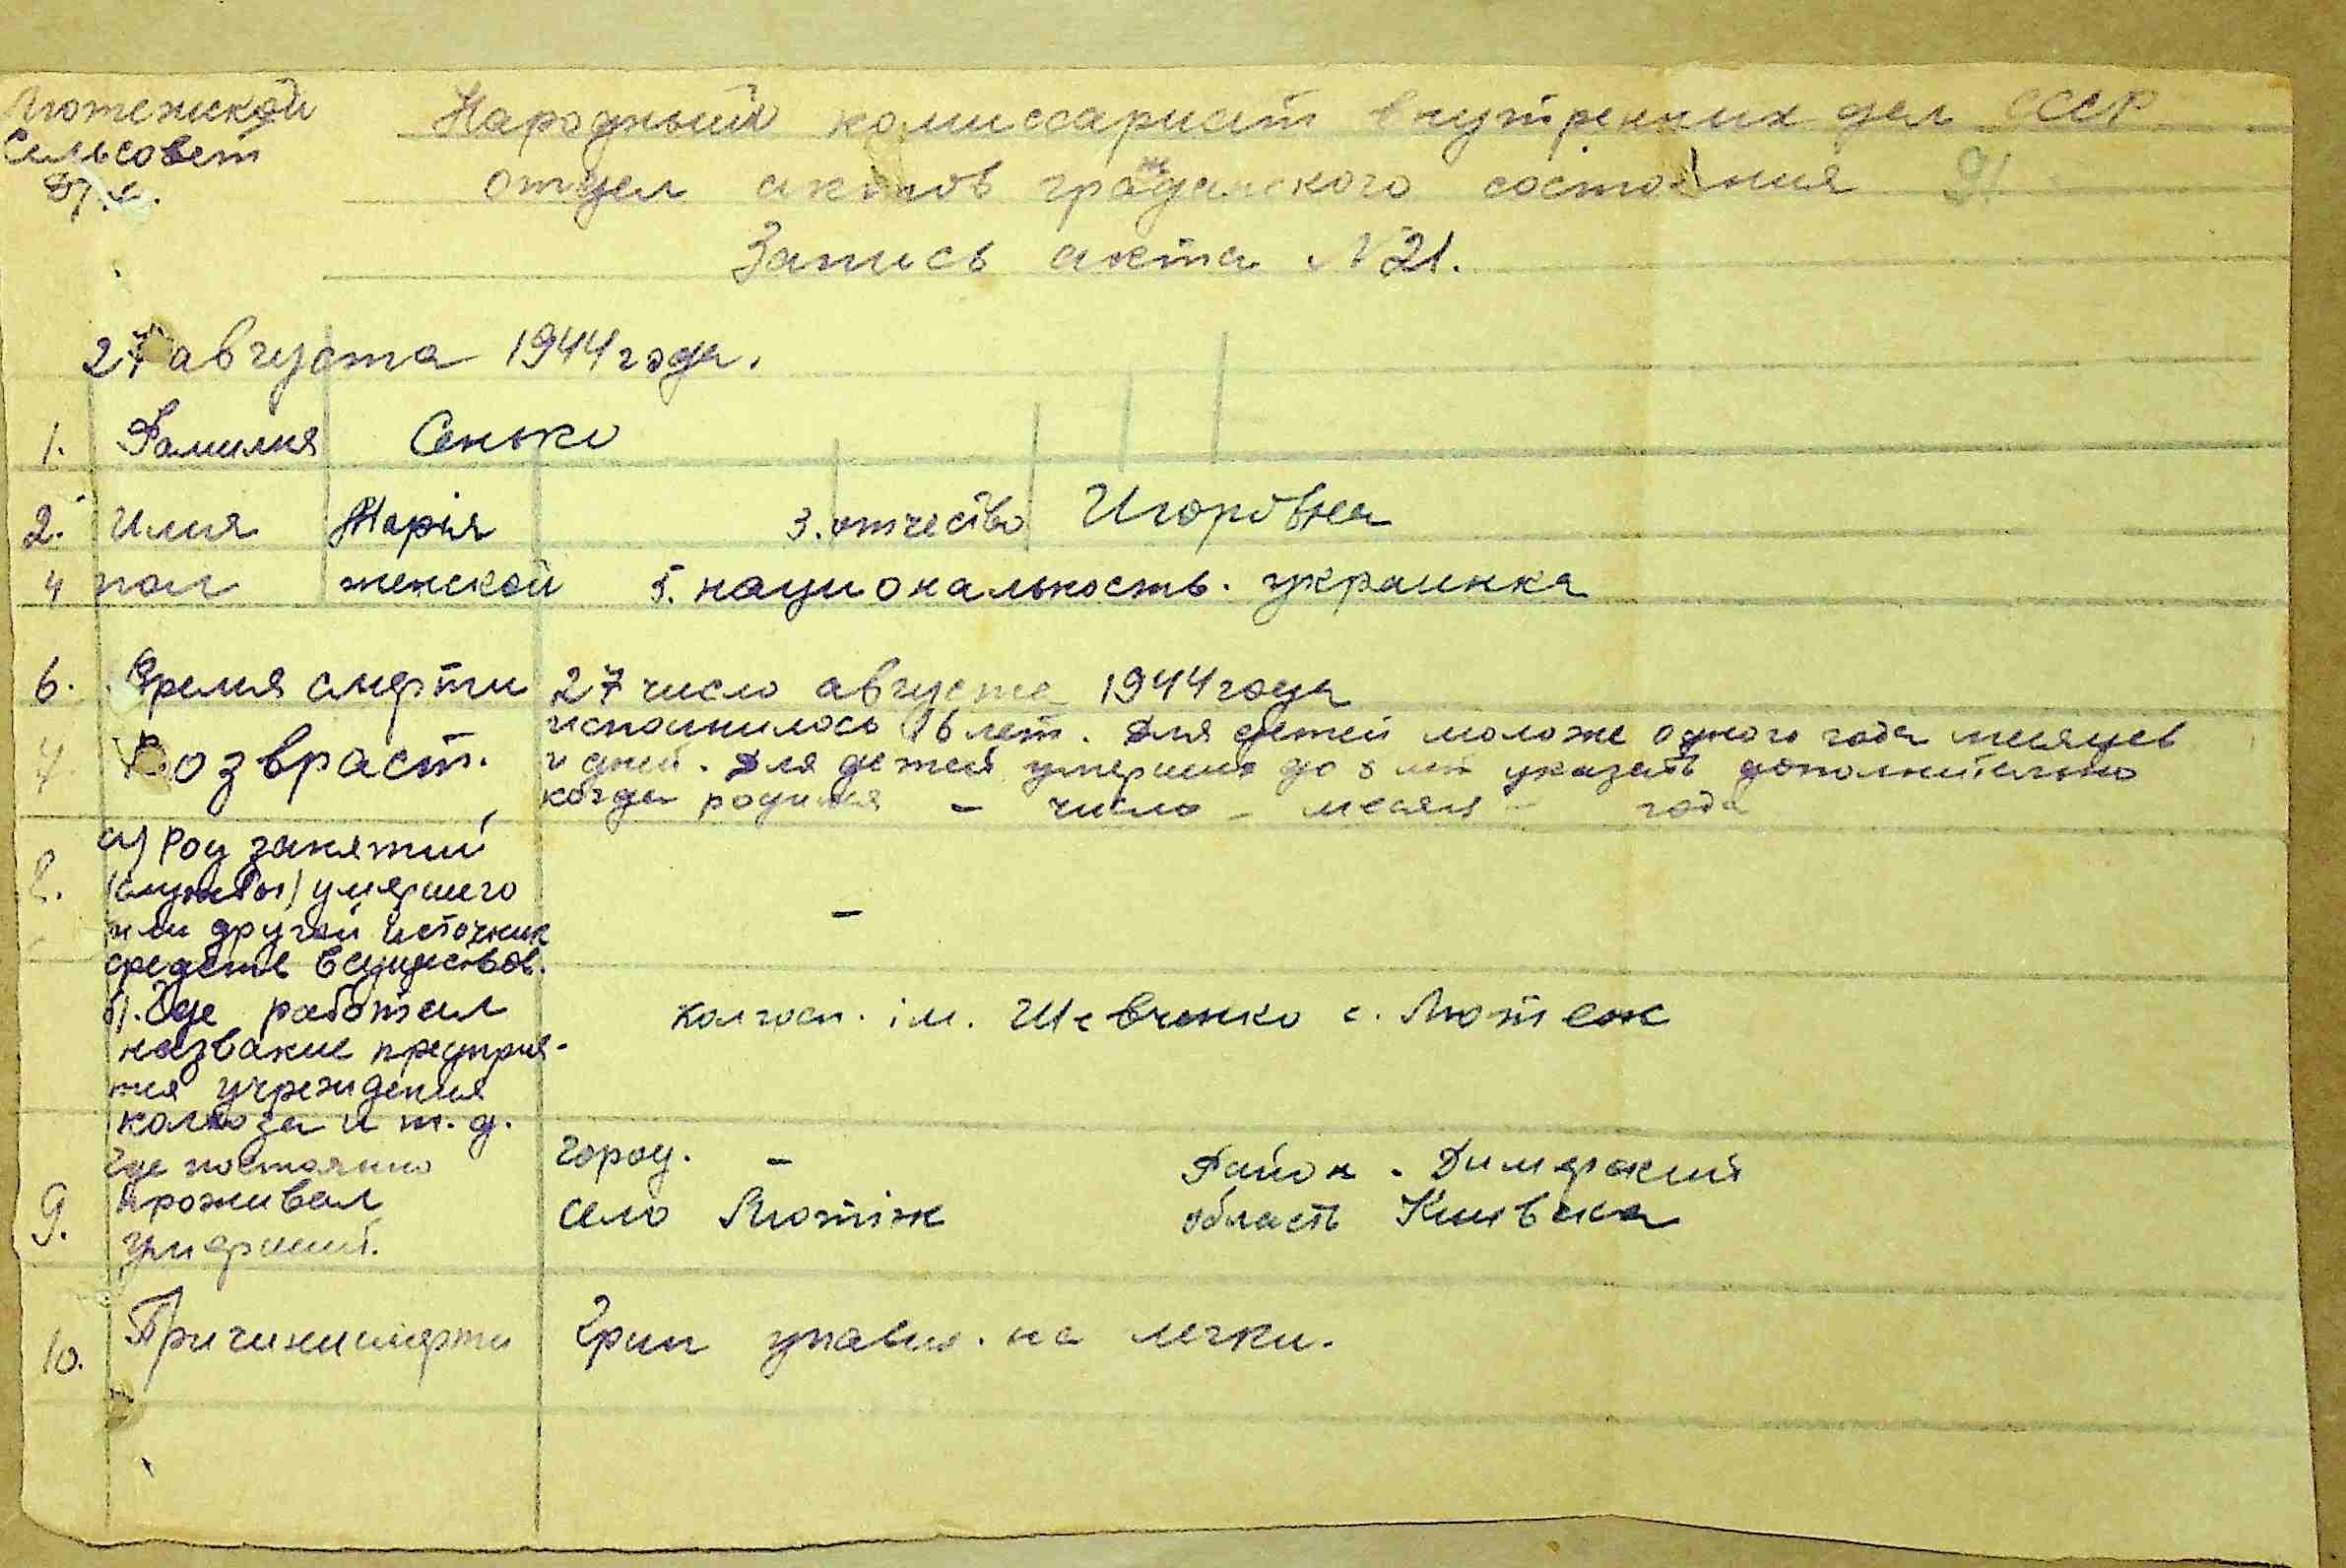 Лютежской Народный комиссариат внутренних дел СССР
Сельсовет отдел актов гражданского состояния
Запись акта N 21.
27 августа 1944 года.
1. Фамилия Сенько
2. Имя Марія 3. отчество Игоровна
4 пол женской 5. национальность. украинка
6. Время смерти 27 число августа 1944 года
7 Возвраст. исполнилось 16 лет. Для детей моложе одного года месяцев
и дней. Для детей умерших до 5 лет указать дополнительно
когда родился - число - месяц - года
8. а) Род занятий
(службы) умершего
или другой источник -
средств существов.
б). Где работал колгосп. ім. Шевченко с. Лютеж
название предприя-
тия учреждения
колхоза и т. д.
9. Где постоянно город. - Район - Димерский
проживал село Лютіж область Киівска
умерший.
10. Причини смерти Грип на легки.